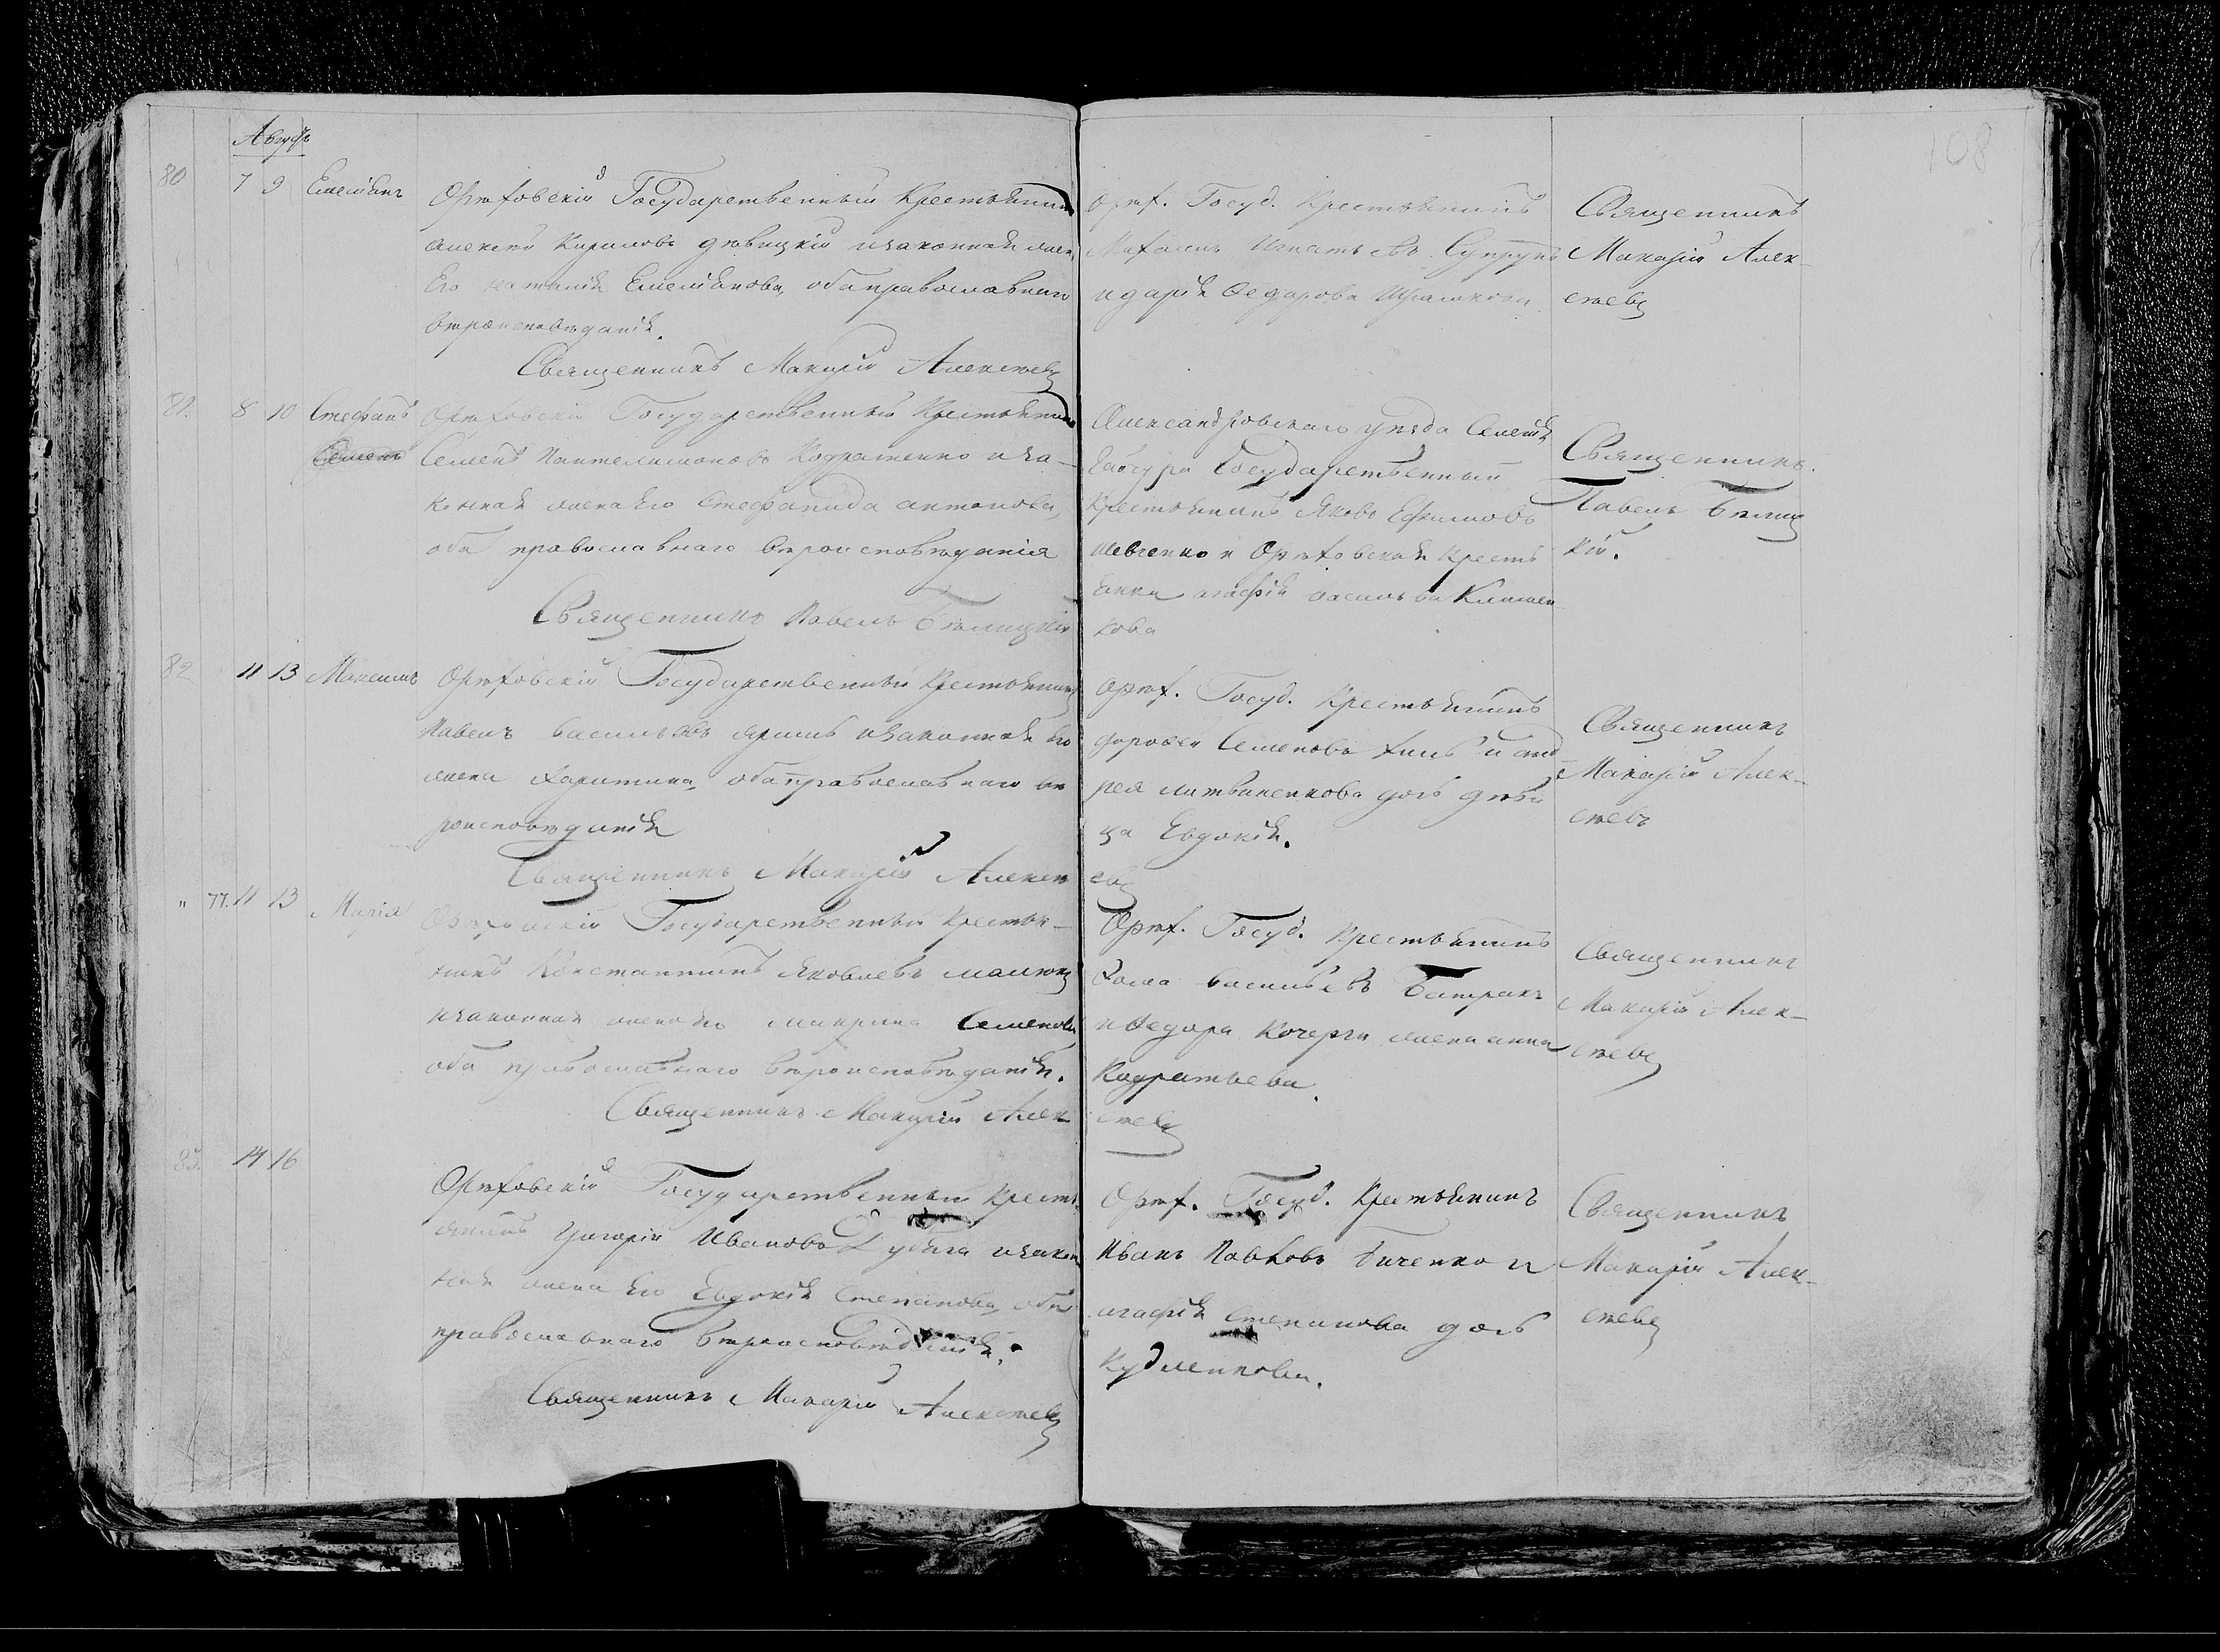 108
Августъ
80 7 9 Емелiянъ
Орѣховскiй Государственный Крестьянинъ
Алексѣй Кириловъ Дѣвицкiй и законная жена
Его Наталiя Емелiянова, оба православнаго
вѣроисповѣданiя.
Священникъ Макарiй Алексѣевъ
Орѣх. Госуд. Крестьянинъ
Игнатьевъ Супрунъ
и Дарiя Федорова
Священникъ
Макарiй Алек-
сѣевъ
81. 8 10 Стефанъ
Семенъ
Орѣховскiй Государственный Крестьянинъ
Семенъ Пантелимоновъ Кодратенко и за-
конная жена Его Стефанида Антонова,
оба православнаго вѣроисповѣданiя
Священникъ Павелъ Бѣлицкiй
Александровскаго уѣзда Селенiя
Гайчура Государственный
Крестьянинъ Яковъ Ефимовъ
Шевченко и Орѣховская Кресть
янка Агафiя Васильева Климен
кова
Священникъ
Павелъ Бѣлиц
кiй.
82 11 13 Максимъ
Орѣховскiй Государственный Крестьянинъ
Павелъ Васильевъ Ярышъ и законная его
жена Харитина, оба православнаго вѣ
роисповѣданiя
Священникъ Макарiй Алексѣ
евъ
Орѣх. Госуд. Крестьянинъ
Дорофей Семеновъ и Анд
рея Литвиненкова дочь дѣви
ца Евдокiя.
Священникъ
Макарiй Алек-
сѣевъ
" 77. 11 13 Марiя
Орѣховскiй Государственный Крестья-
нинъ Константинъ Яковлевъ
и законная жена его Макрина Семенова
оба православнаго вѣроисповѣданiя.
Священникъ Макарiй Алек
сѣевъ
Орѣх. Госуд. Крестьянинъ
Хома Васильевъ Батракъ
и Федора Кочерги жена Анна
Кодратьева.
Священникъ
Макарiй Алек-
сѣевъ
83. 14 16
Орѣховскiй Государственный Кресть
янинъ Григорiй Ивановъ и закон
ная жена Его Евдокiя Степанова, оба
православнаго вѣроисповѣданiя.
Священникъ Макарiй Алексѣевъ
Орѣх. Госуд. Крестьянинъ
Иванъ Павловъ Биченко и
Агафiя Степанова дочь
Кудленкова.
Священникъ
Макарiй Алек-
сѣевъ